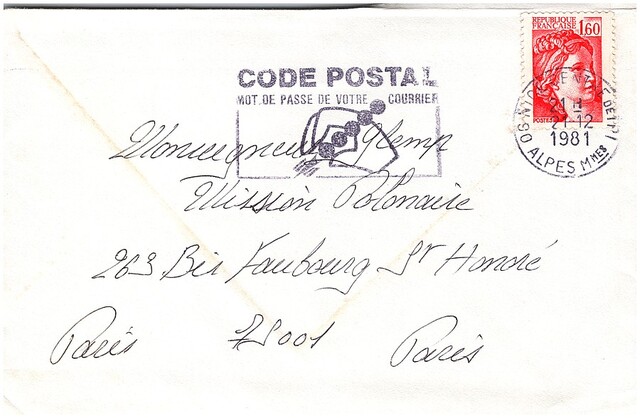 REPUBLIQUE FRANCAISE 1,60
POSTES
CODE POSTAL
MOT DE PASSE DE VOTRE COURRIER
21 H
21-12
1981
06 ALPES MMES
Monseigneur Glemp
Mission Polonaise
263 Bis Faubourg St Honoré
Paris 75001 Paris